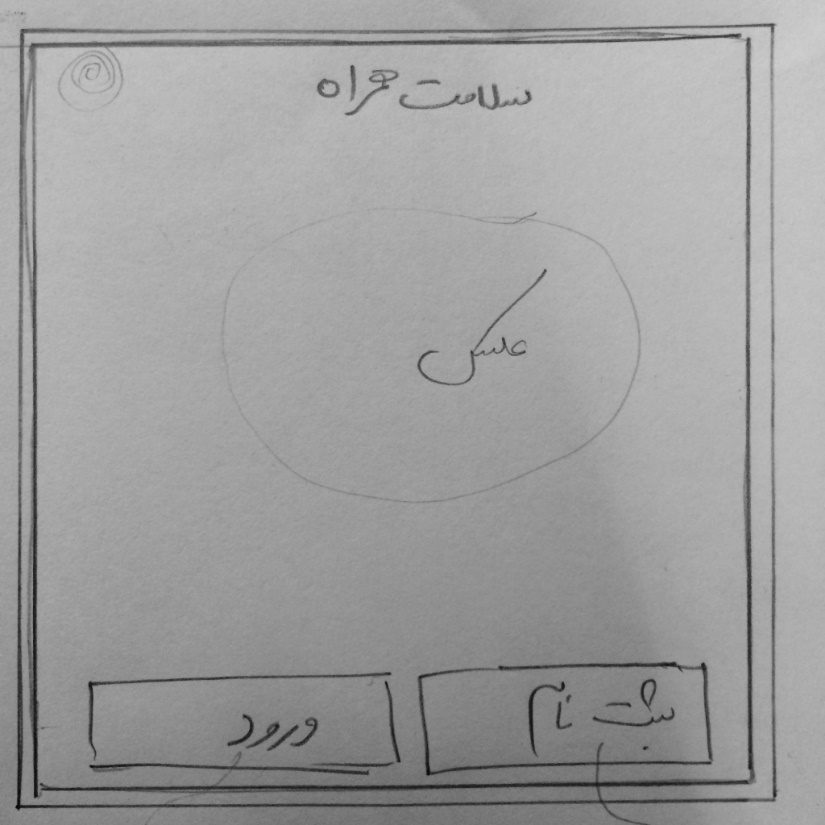 سلامت همراه
عکس
ثبت نام
ورود